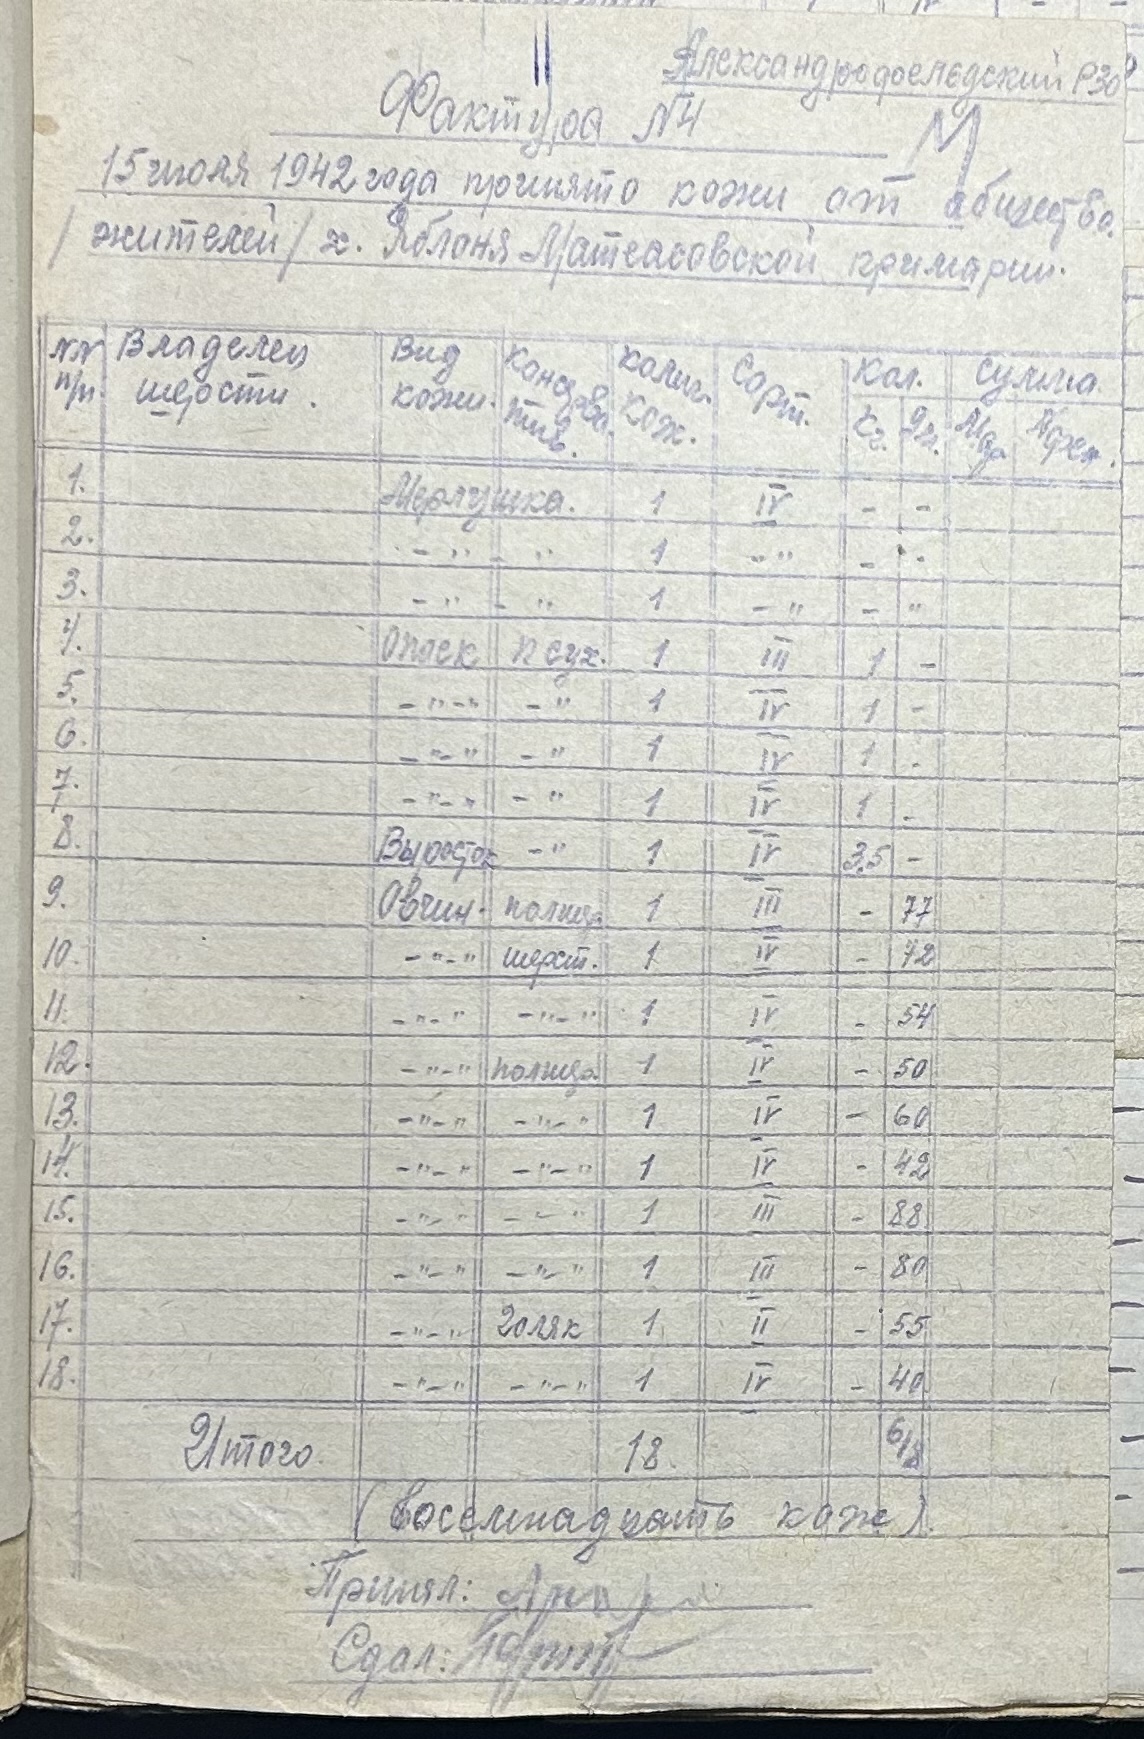 Александрфельдский РЗО
Фактура №4
М
15 июля 1942 года принято кожи от общества
/жителей/ х. Яблоня Матеасовской примарии.
№№ п/п. Владелец шерсти. Вид кожи. Консерва. тив. Колич. кож. Сорт. Кол. Сумма
Кг. Дг. Мар Пфен.
1. Мерлушка. 1 IV - -
2. - " " 1 " " - -
3. - " - " 1 - " - "
4. Опоек п сух. 1 III 1 -
5. - " - " - " 1 IV 1 -
6. - " - " - " 1 IV 1 -
7. - " - " - " 1 IV 1 -
8. Выросток - " 1 IV 3,5 -
9. Овчин. полшер 1 III - 77
10. - " - " шерст. 1 IV - 72
11. - " - " - " - " 1 IV - 54
12. - " - " полшер 1 IV - 50
13. - " - " - " - " 1 IV - 60
14. - " - " - " - " 1 IV - 42
15. - " - " - " - " 1 III - 88
16. - " - " - " - " 1 III - 80
17. - " - " голяк 1 II - 55
18. - " - " - " - " 1 IV - 40
Итого. 18. 6/8
(восемнадцать кож).
Принял:
Сдал: